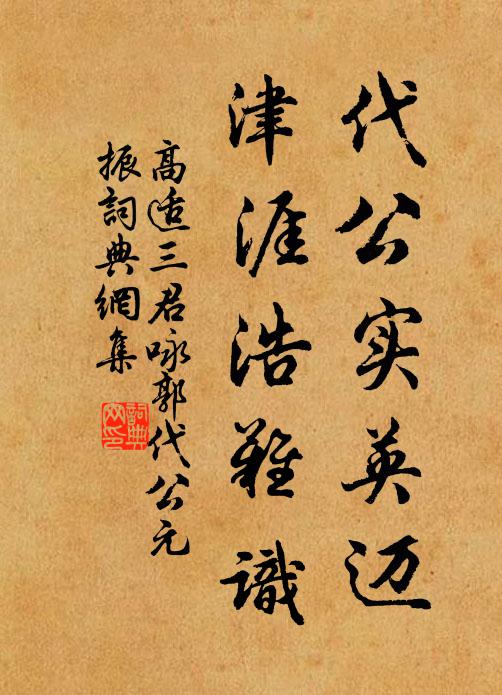 代公实英迈
津涯浩难識
高适三君咏郭代公元
振詞典網集
詞典
網印